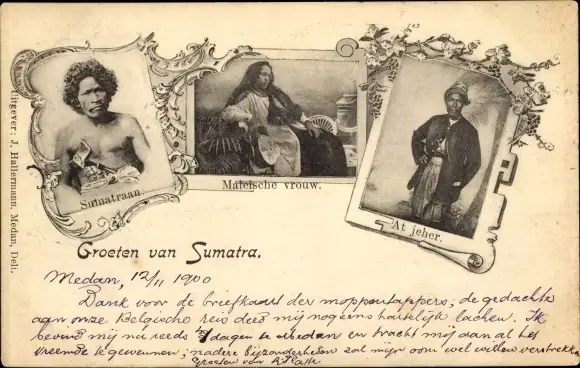 Uitgever: J. Hallermann, Medan, Deli.
Sumatraan.
Maleische vrouw.
At jeher.
Groeten van Sumatra.
Medan, 12/11 1900
Dank voor de briefkaart der moppentappers; de gedachte
aan onze Belgische reis deed mij nog eens hartelijk lachen. Ik
bevind mij nu reeds dagen te Medan en tracht mij aan al het
vreemde te gewennen; nadere bijzonderheden zal mijn oom wel willen verstrekken
Groeten van